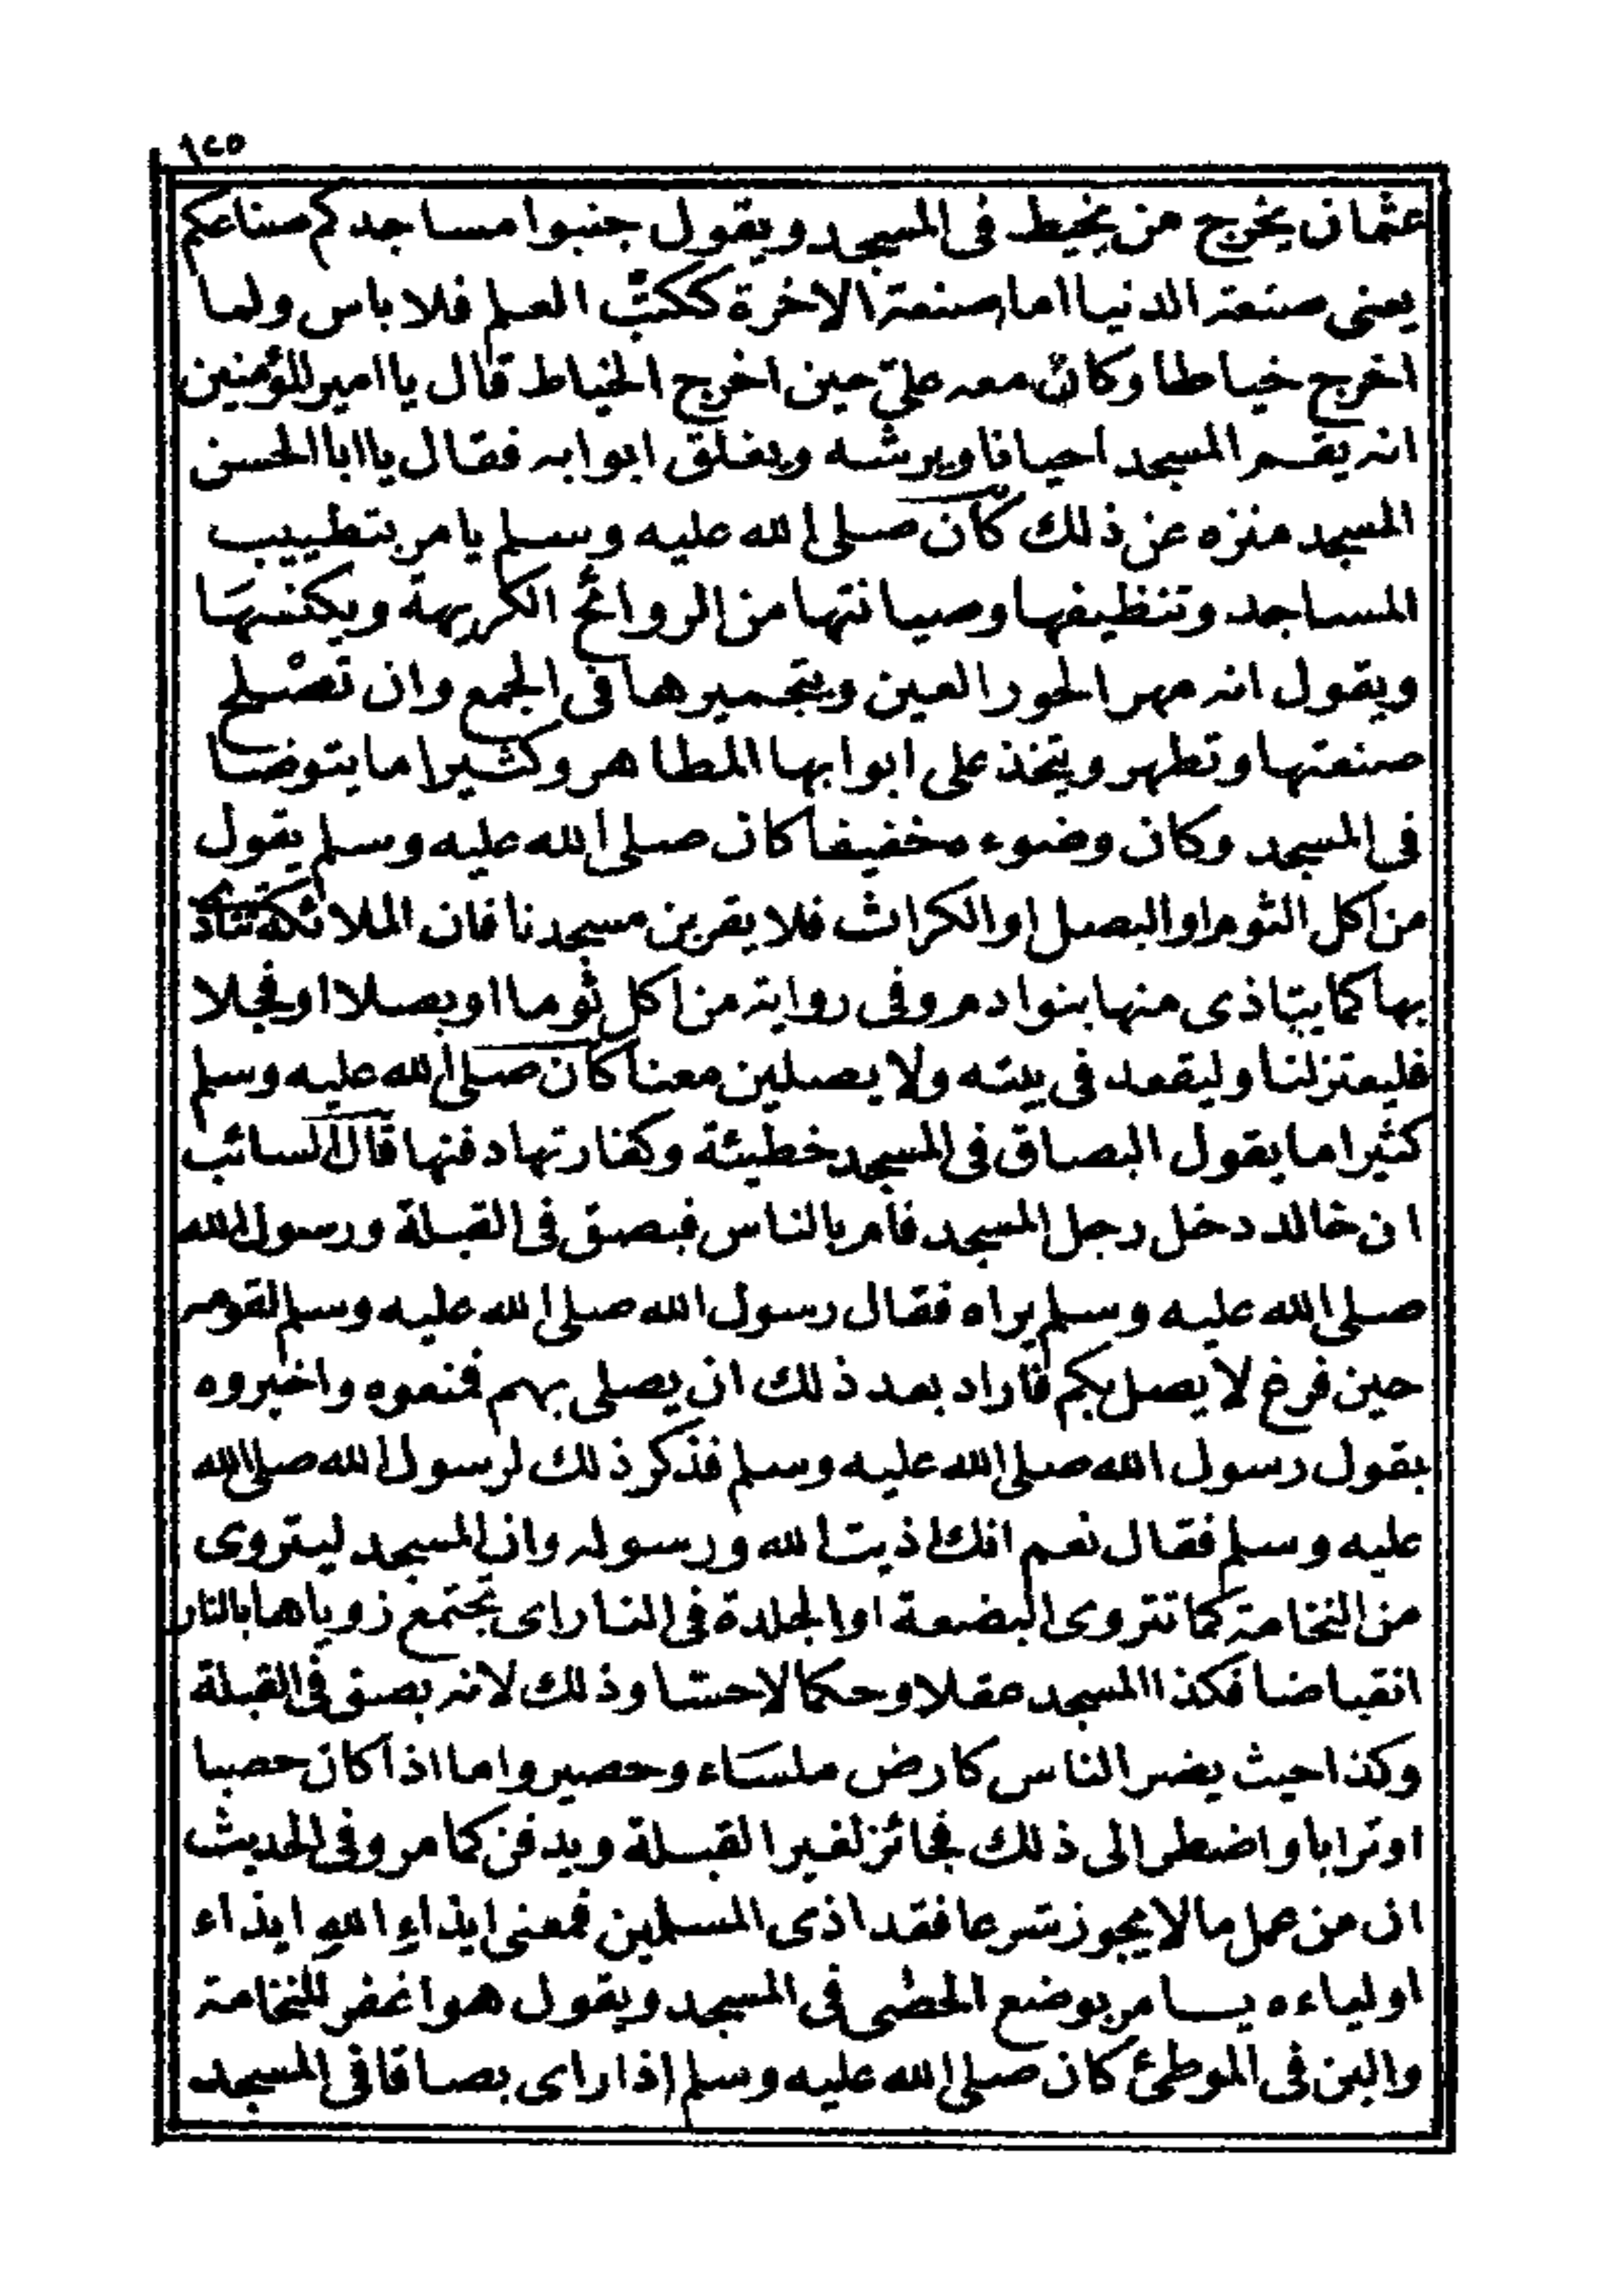 ١٢٥
عثمان يخرج من يخيط فى المسجد ويقول جنبوا مساجدكم صناعكم
يعنى صنعة الدنيا اما صنعة الاخرة ككتب العلم فلا باس ولما
اخرج خياطا وكان معه علىّ حين اخرج الخياط قال يا امير المؤمنين
انه يقم المسجد احيانا ويرشه ويغلق ابوابه فقال يا ابا الحسن
المسجد منزه عن ذلك كان صلى الله عليه وسلم يامر بتطييب
المساجد وتنظيفها وصيانتها من الروائح الكريهة ويكنسهَا
ويقول انه مهر الحور العين وبتجميرها فى الجمع وان تصْلح
صنعتها وتطهر ويتخذ على ابوابها المطاهر وكثيرا ما يتوضا
فى المسجد وكان وضوءه خفيفا كان صلى الله عليه وسلم يقول
من اكل الثوم او البصل او الكراث فلا يقربن مسجدنا فان الملائكة تتاذى
بها كما يتاذى منها بنوا دم وفى رواية من اكل ثوما او بصلا او فجلا
فليعتزلنا وليقعد فى بيته ولا يصلين معنا كان صلى الله عليه وسلم
كثيرا ما يقول البصاق فى المسجد خطيئة وكفارتها دفنها قال السائب
ان خالد دخل رجل المسجد فأمر بالناس فبصق فى القبلة ورسول الله
صلى الله عليه وسلم يراه فقال رسول الله صلى الله عليه وسلم لقومه
حين فرغ لا يصل بكم فاراد بعد ذلك ان يصلى بهم فمنعوه واخبروه
بقول رسول الله صلى الله عليه وسلم فذكر ذلك لرسول الله صلى الله
عليه وسلم فقال نعم انك اذيت الله ورسوله وان المسجد ليتروى
من النخامة كما تتروى البضعة او الجلدة فى النار اى تجتمع زوياها بالنار
انقباضا فكذا المسجد عقلا وحكما لا حسّا وذلك لانه بصق فى القبلة
وكذا حيث يضر الناس كارض ملسَاء وحصير واما اذا كان حصبا
او ترابا واضطر الى ذلك فجائز لغير القبلة ويدفن كما مر وفى الحديث
ان من عمل ما لا يجوز شرعا فقد اذى المسلمين فمعنى ايذاءِ اللهِ ايذاء
اولياءه يامر بوضع الحصى فى المسجد ويقول هو اغفر للنخامة
والين فى الموطئ كان صلى الله عليه وسلم اذا راى بصاقا فى المسجد